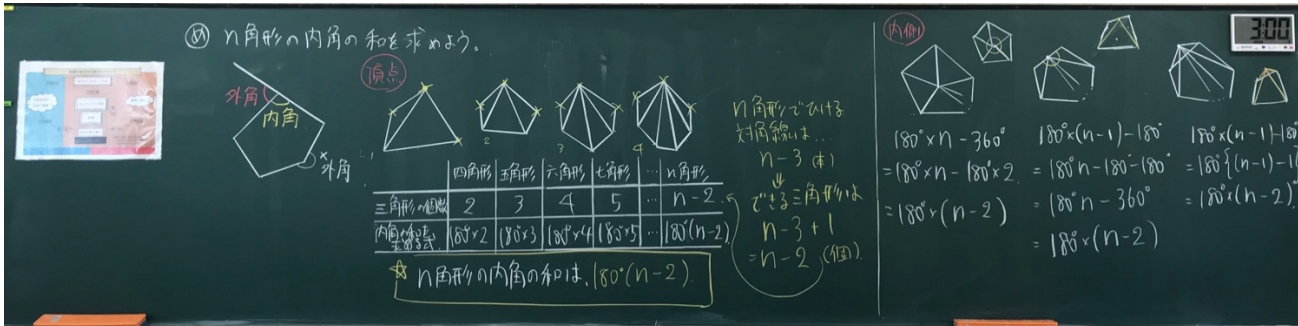 め n角形の内角の和を求めよう。
外角
内角
外角
頂点
1
2
3
4
四角形 五角形 六角形 七角形 … n角形
三角形の個数 2 3 4 5 … n-2
180°×2 180°×3 180°×4 180°×5 … 180°(n-2)
☆ n角形の内角の和は、180°(n-2)
n角形でひける
対角線は…
n-3(本)
↓
できる三角形は
n-3+1
=n-2(個)
内側
180°×n-360°
=180°×n-180°×2
=180°×(n-2)
180°×(n-1)-180°
=180°n-180°-180°
=180°n-360°
=180°×(n-2)
180°×(n-1)-180
=180°{(n-1)-1
=180°×(n-2)
3:00